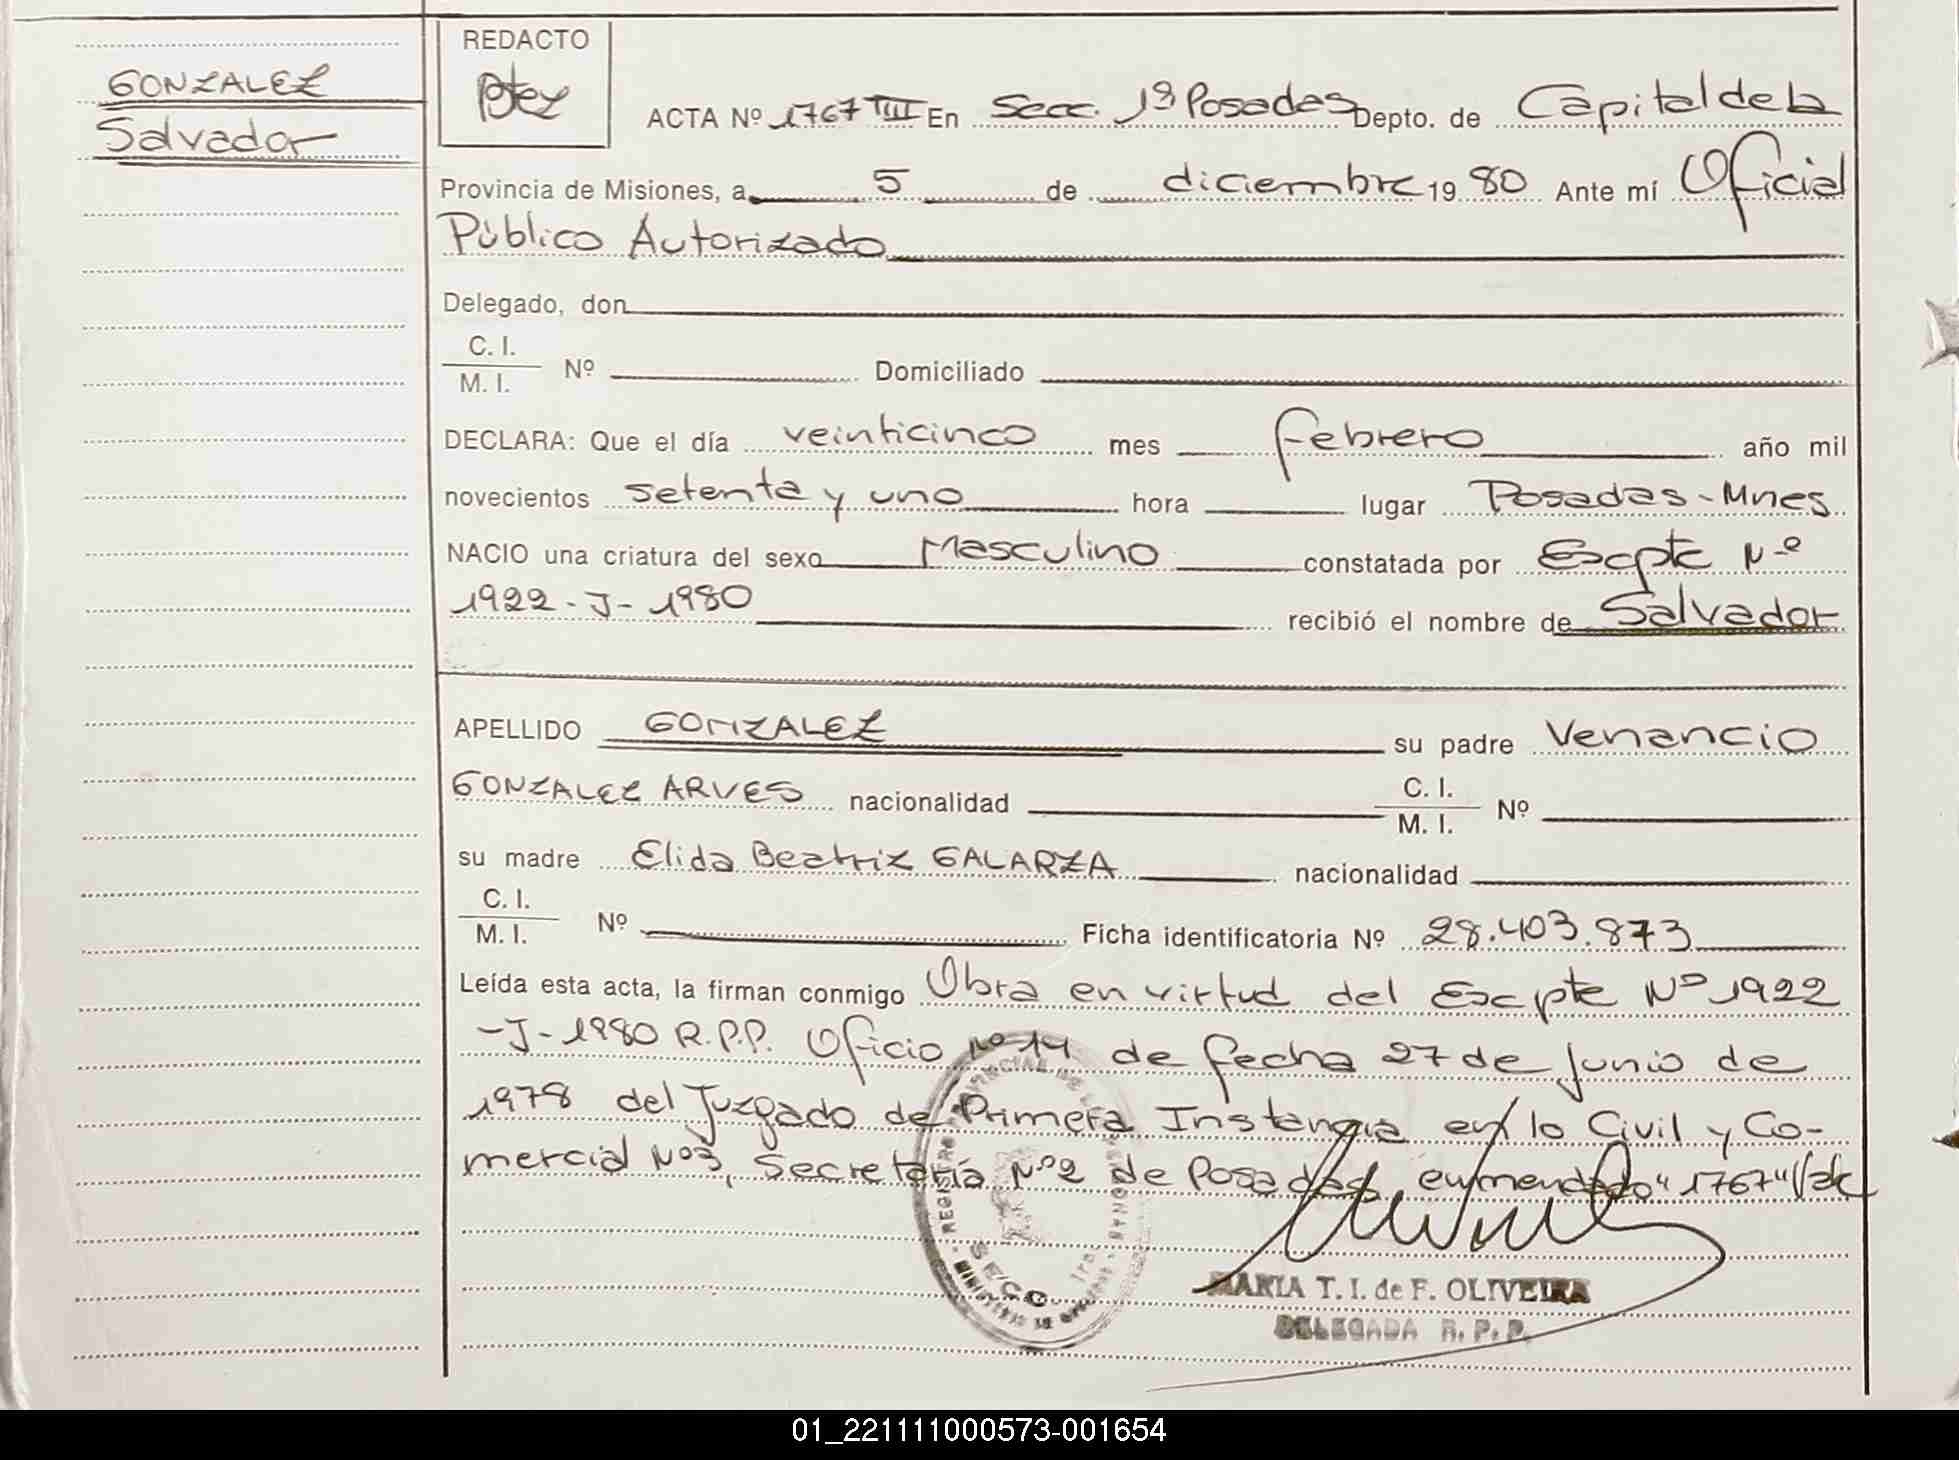 GONZALEZ
Salvador
REDACTO
ACTA Nº 1767 TIII En Secc. 1ª Posadas Depto. de Capital de la
Provincia de Misiones, a 5 de diciembre 19 80 Ante mí Oficial
Público Autorizado
Delegado, don
C. I.
M. I. Nº Domiciliado
DECLARA: Que el día veinticinco mes febrero año mil
novecientos setenta y uno hora lugar Posadas - Mnes
NACIO una criatura del sexo Masculino constatada por Escpte Nº
1922 - J - 1980 recibió el nombre de Salvador
APELLIDO GONZALEZ su padre Venancio
GONZALEZ ARVES nacionalidad C. I.
M. I. Nº
su madre Elida Beatriz GALARZA nacionalidad
C. I.
M. I. Nº Ficha identificatoria Nº 28.403.873
Leída esta acta, la firman conmigo Obra en virtud del Escpte Nº 1922
- J - 1980 R.P.P. Oficio Nº 14 de fecha 27 de Junio de
1978 del Juzgado de Primera Instancia en lo Civil y Co-
mercial Nº3, Secretaría Nº2 de Posadas, enmendado "1767"
MARIA T. I. de F. OLIVEIRA
DELEGADA R. P. P.
01_221111000573-001654